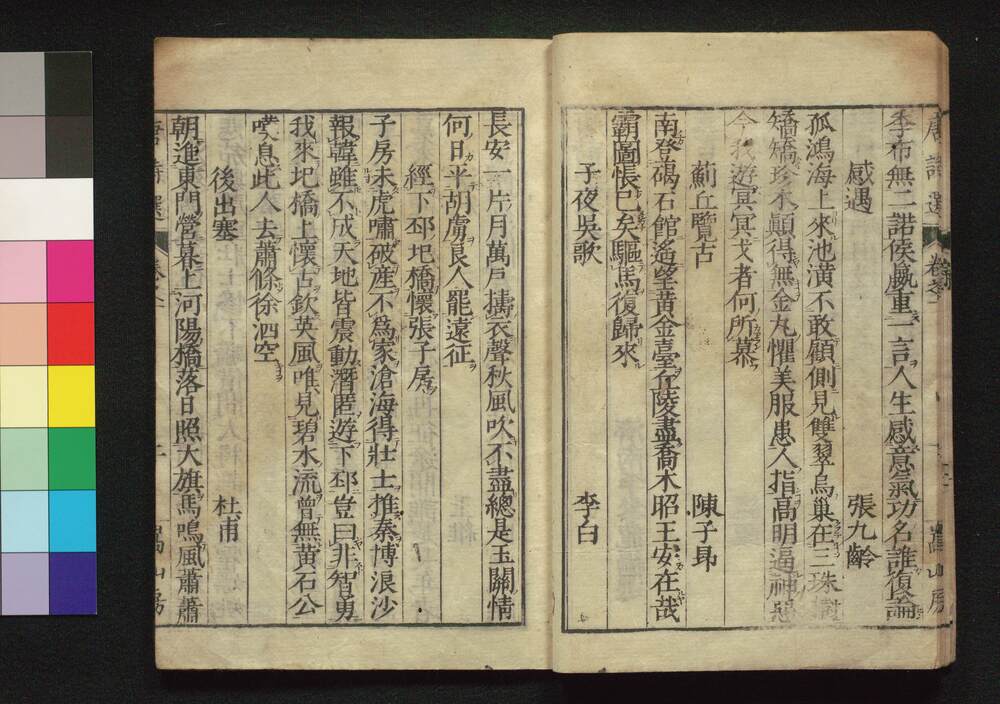 唐詩選 卷之一 嵩山房
季布無二諾侯嬴重一言人生感意氣功名誰復論
感遇 張九齡
孤鴻海上來池潢不敢顧側見雙翠鳥巢在三珠樹
矯矯珍木顛得無金丸懼美服患人指高明逼神惡
今我遊冥冥弋者何所慕
薊丘覽古 陳子昂
南登碣石館遙望黃金臺丘陵盡喬木昭王安在哉
霸圖悵已矣驅馬復歸來
子夜吳歌 李白
長安一片月萬戶擣衣聲秋風吹不盡總是玉關情
何日平胡虜良人罷遠征
經下邳圯橋懷張子房
子房未虎嘯破產不爲家滄海得壯士推秦博浪沙
報韓雖不成天地皆震動潛匿遊下邳豈曰非智勇
我來圯橋上懷古欽英風唯見碧水流曾無黃石公
嘆息此人去蕭條徐泗空
後出塞 杜甫
朝進東門營暮上河陽橋落日照大旗馬鳴風蕭蕭
唐詩選 卷之一 嵩山房